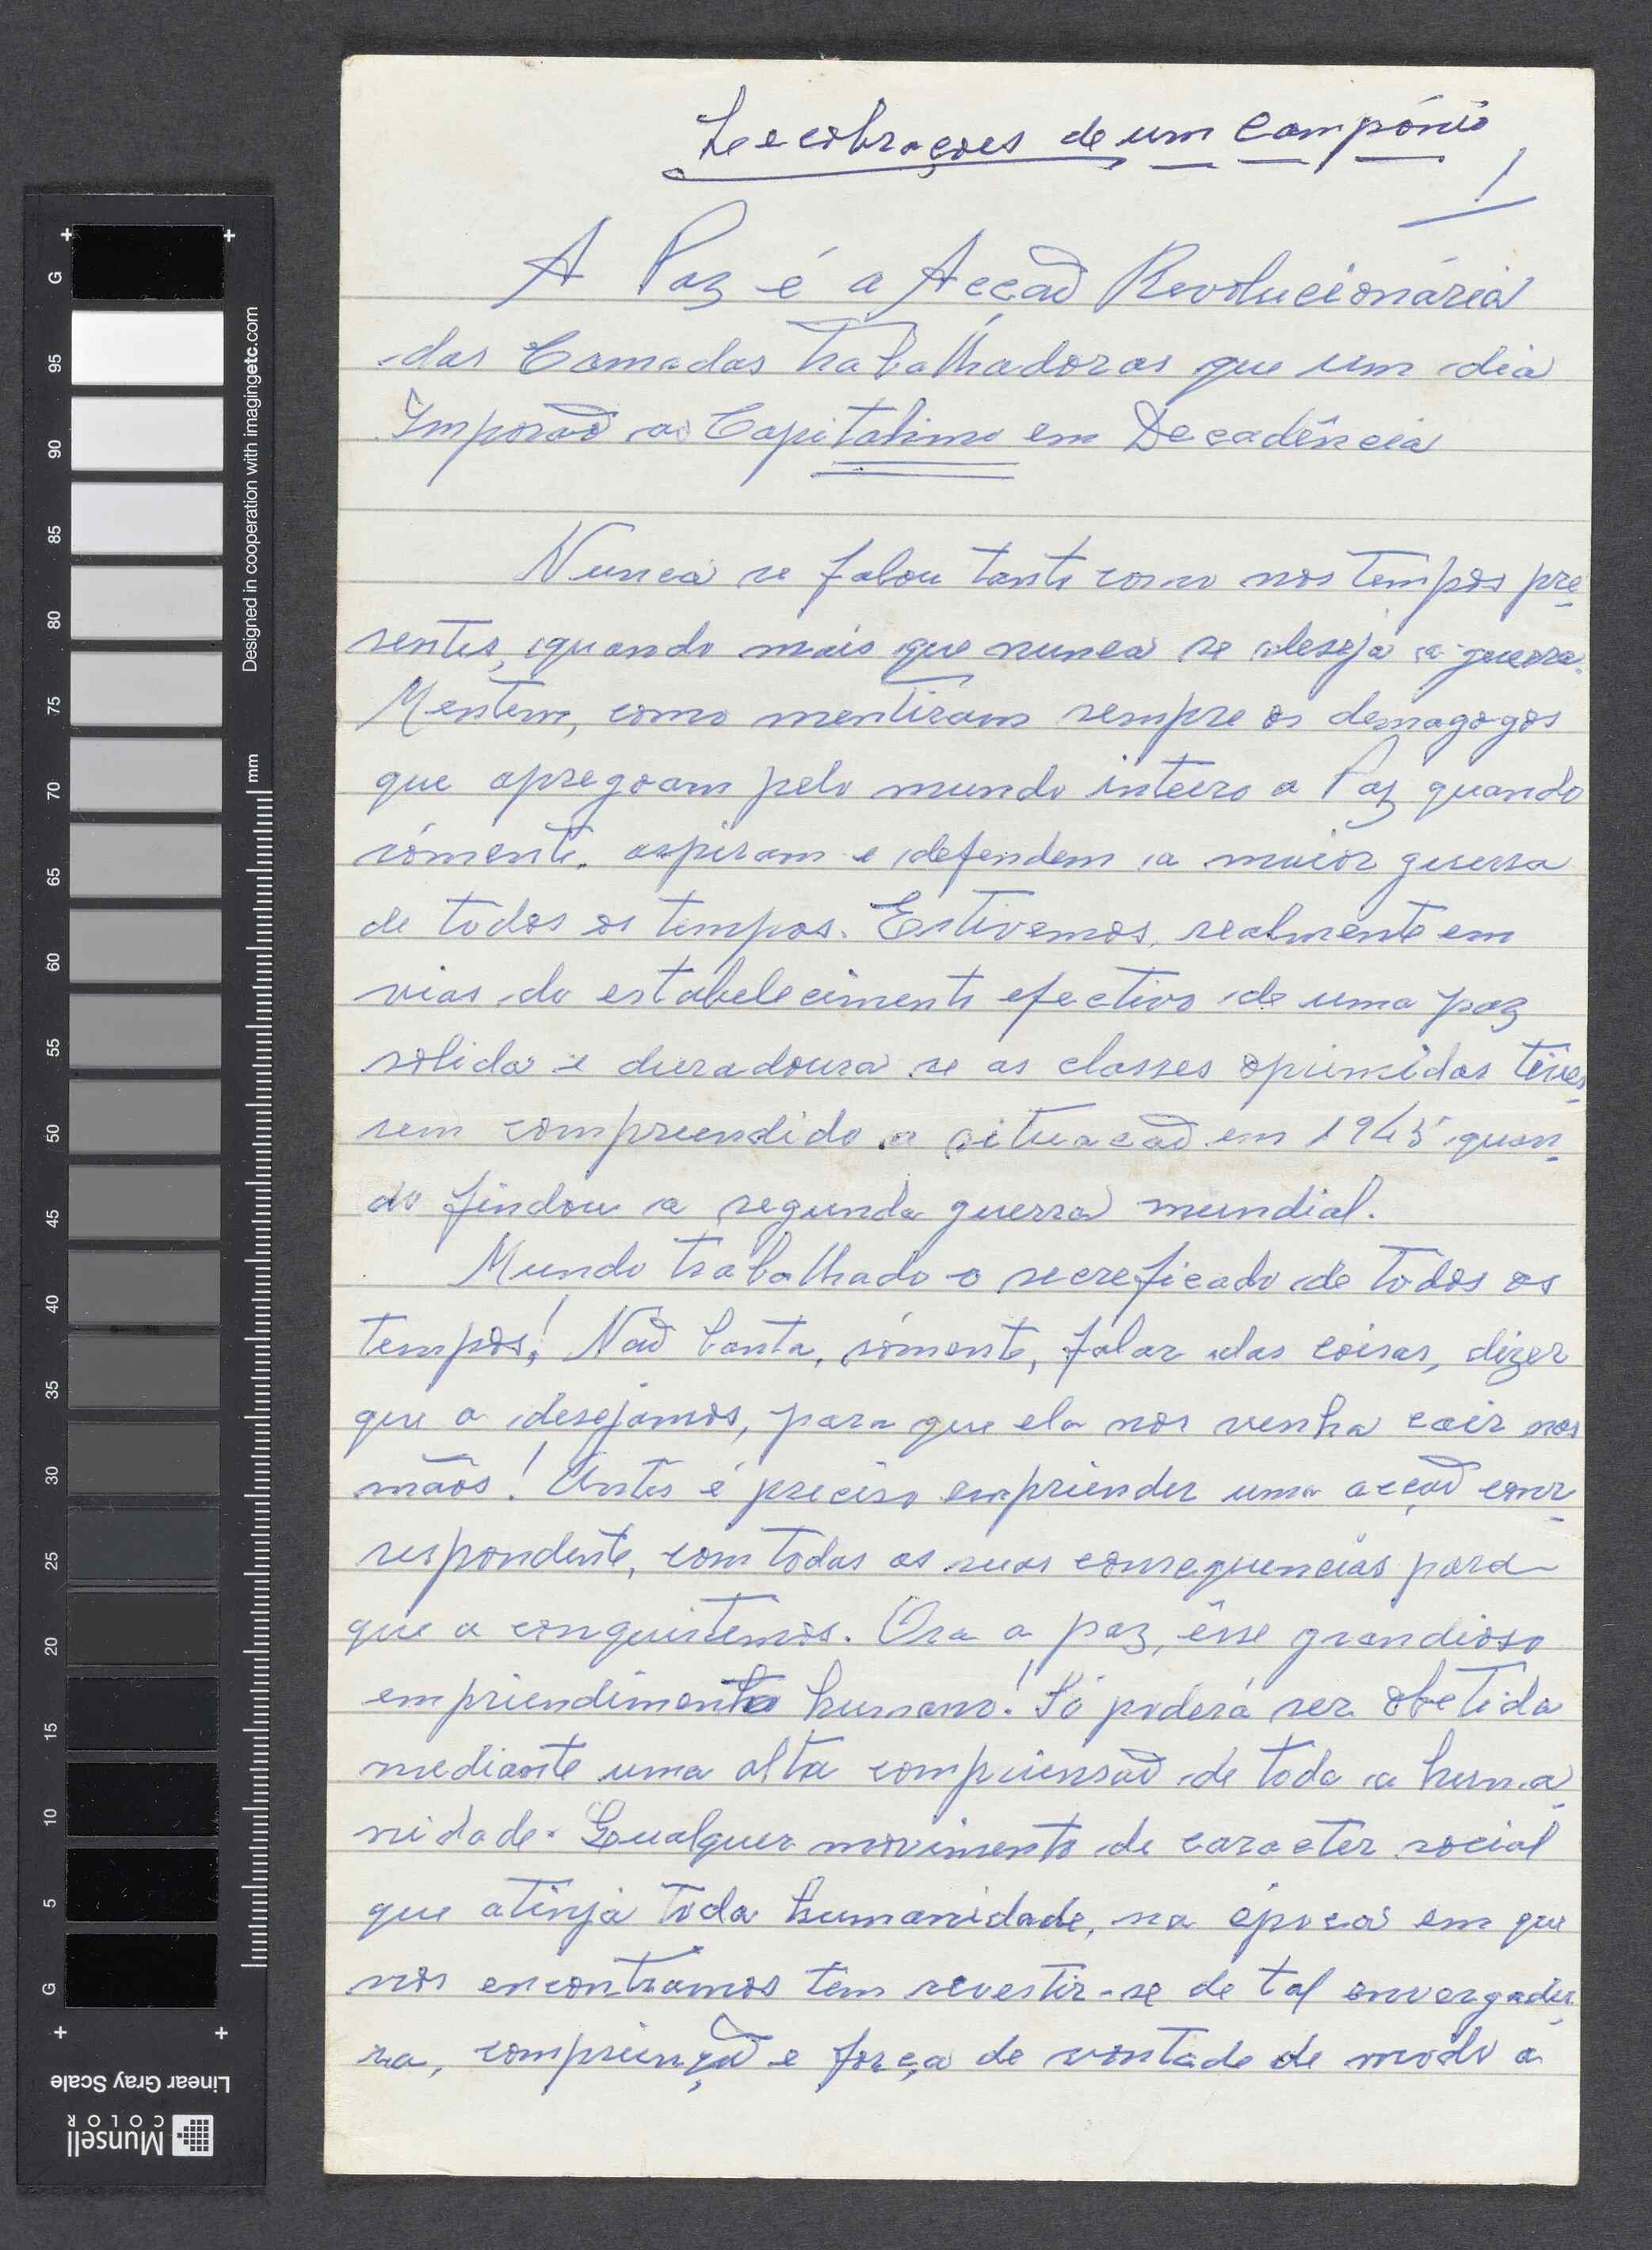 Lecobrações de um Campónio
1
A Paz é a Acção Revolucionária
das Camadas trabalhadoras que um dia
Imporaõ ao Capitalimo em Decadência
Nunca se falou tanto como nos tempos pre-
sentes, quando mais que nunca se deseja a guerra.
Mentem, como mentiram sempre os demagogos
que apregoam pelo mundo inteiro a Paz quando
sómente, aspiram e defendem a maior guerra
de todos os tempos. Estivemos, realmente em
vias do estabelecimento efectivo de uma paz
solida e duradoura se as classes oprimidas tives-
sem compreendido a situacaõ em 1945 quan-
do findou a segunda guerra mundial.
Mundo trabalhado o secreficado de todos os
tempos! Naõ basta, sómente, falar das coisas, dizer
que a desejamos, para que ela nos venha cair nas
mãos! Antes é preciso empriender uma acçaõ corr-
respondente, com todas as suas consequencias para
que a conquistemos. Ora a paz, êsse grandioso
empriendimento humano! Só poderá ser obetida
mediante uma alta compriensaõ de toda a huma-
nidade. Qualquer movimento de caracter social
que atinja toda humanidade, na época em que
nos encontramos tem revestir-se de tal envergadu-
ra, compriençaõ e força de vontade de modo a
Designed in cooperation with imagingetc.com
mm
G
95
90
85
80
75
70
65
60
55
50
45
40
35
30
25
20
15
10
5
G
Linear Gray Scale
Munsell
COLOR